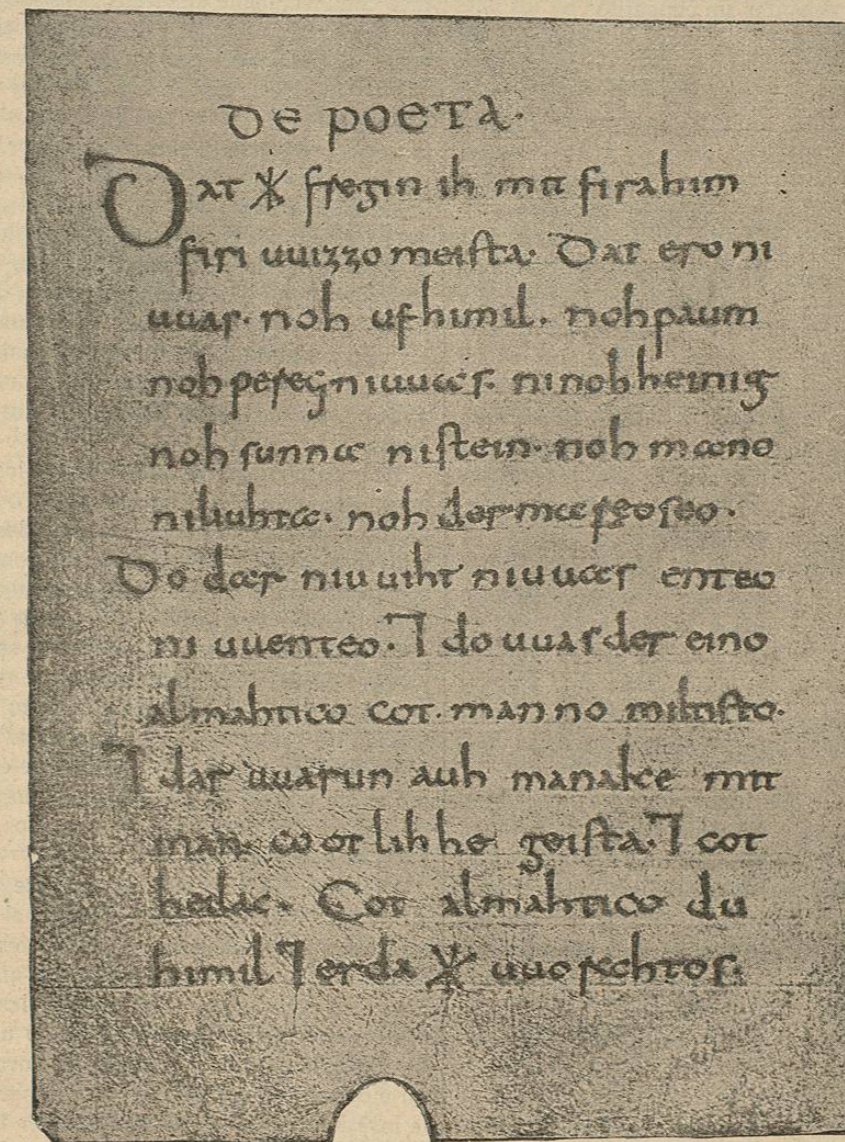 De poeta.
Dat ᚷ fregin ih mit firahim
firi uuizzo meista. Dat ero ni
uuas. noh ufhimil. noh paum
noh pereg ni uuas. ninohheinig
noh sunna nistein. noh mano
niliuhta. noh der mareoseo.
Do dar niuuiht niuuas enteo
ni uuenteo. ⁊ do uuas der eino
almahtico cot. manno miltisto.
⁊ dar uuarun auh manake mit
man. cootlihhe geista. ⁊ cot
heilac. Cot almahtico du
himil ⁊ erda ᚷ uuorahtos.